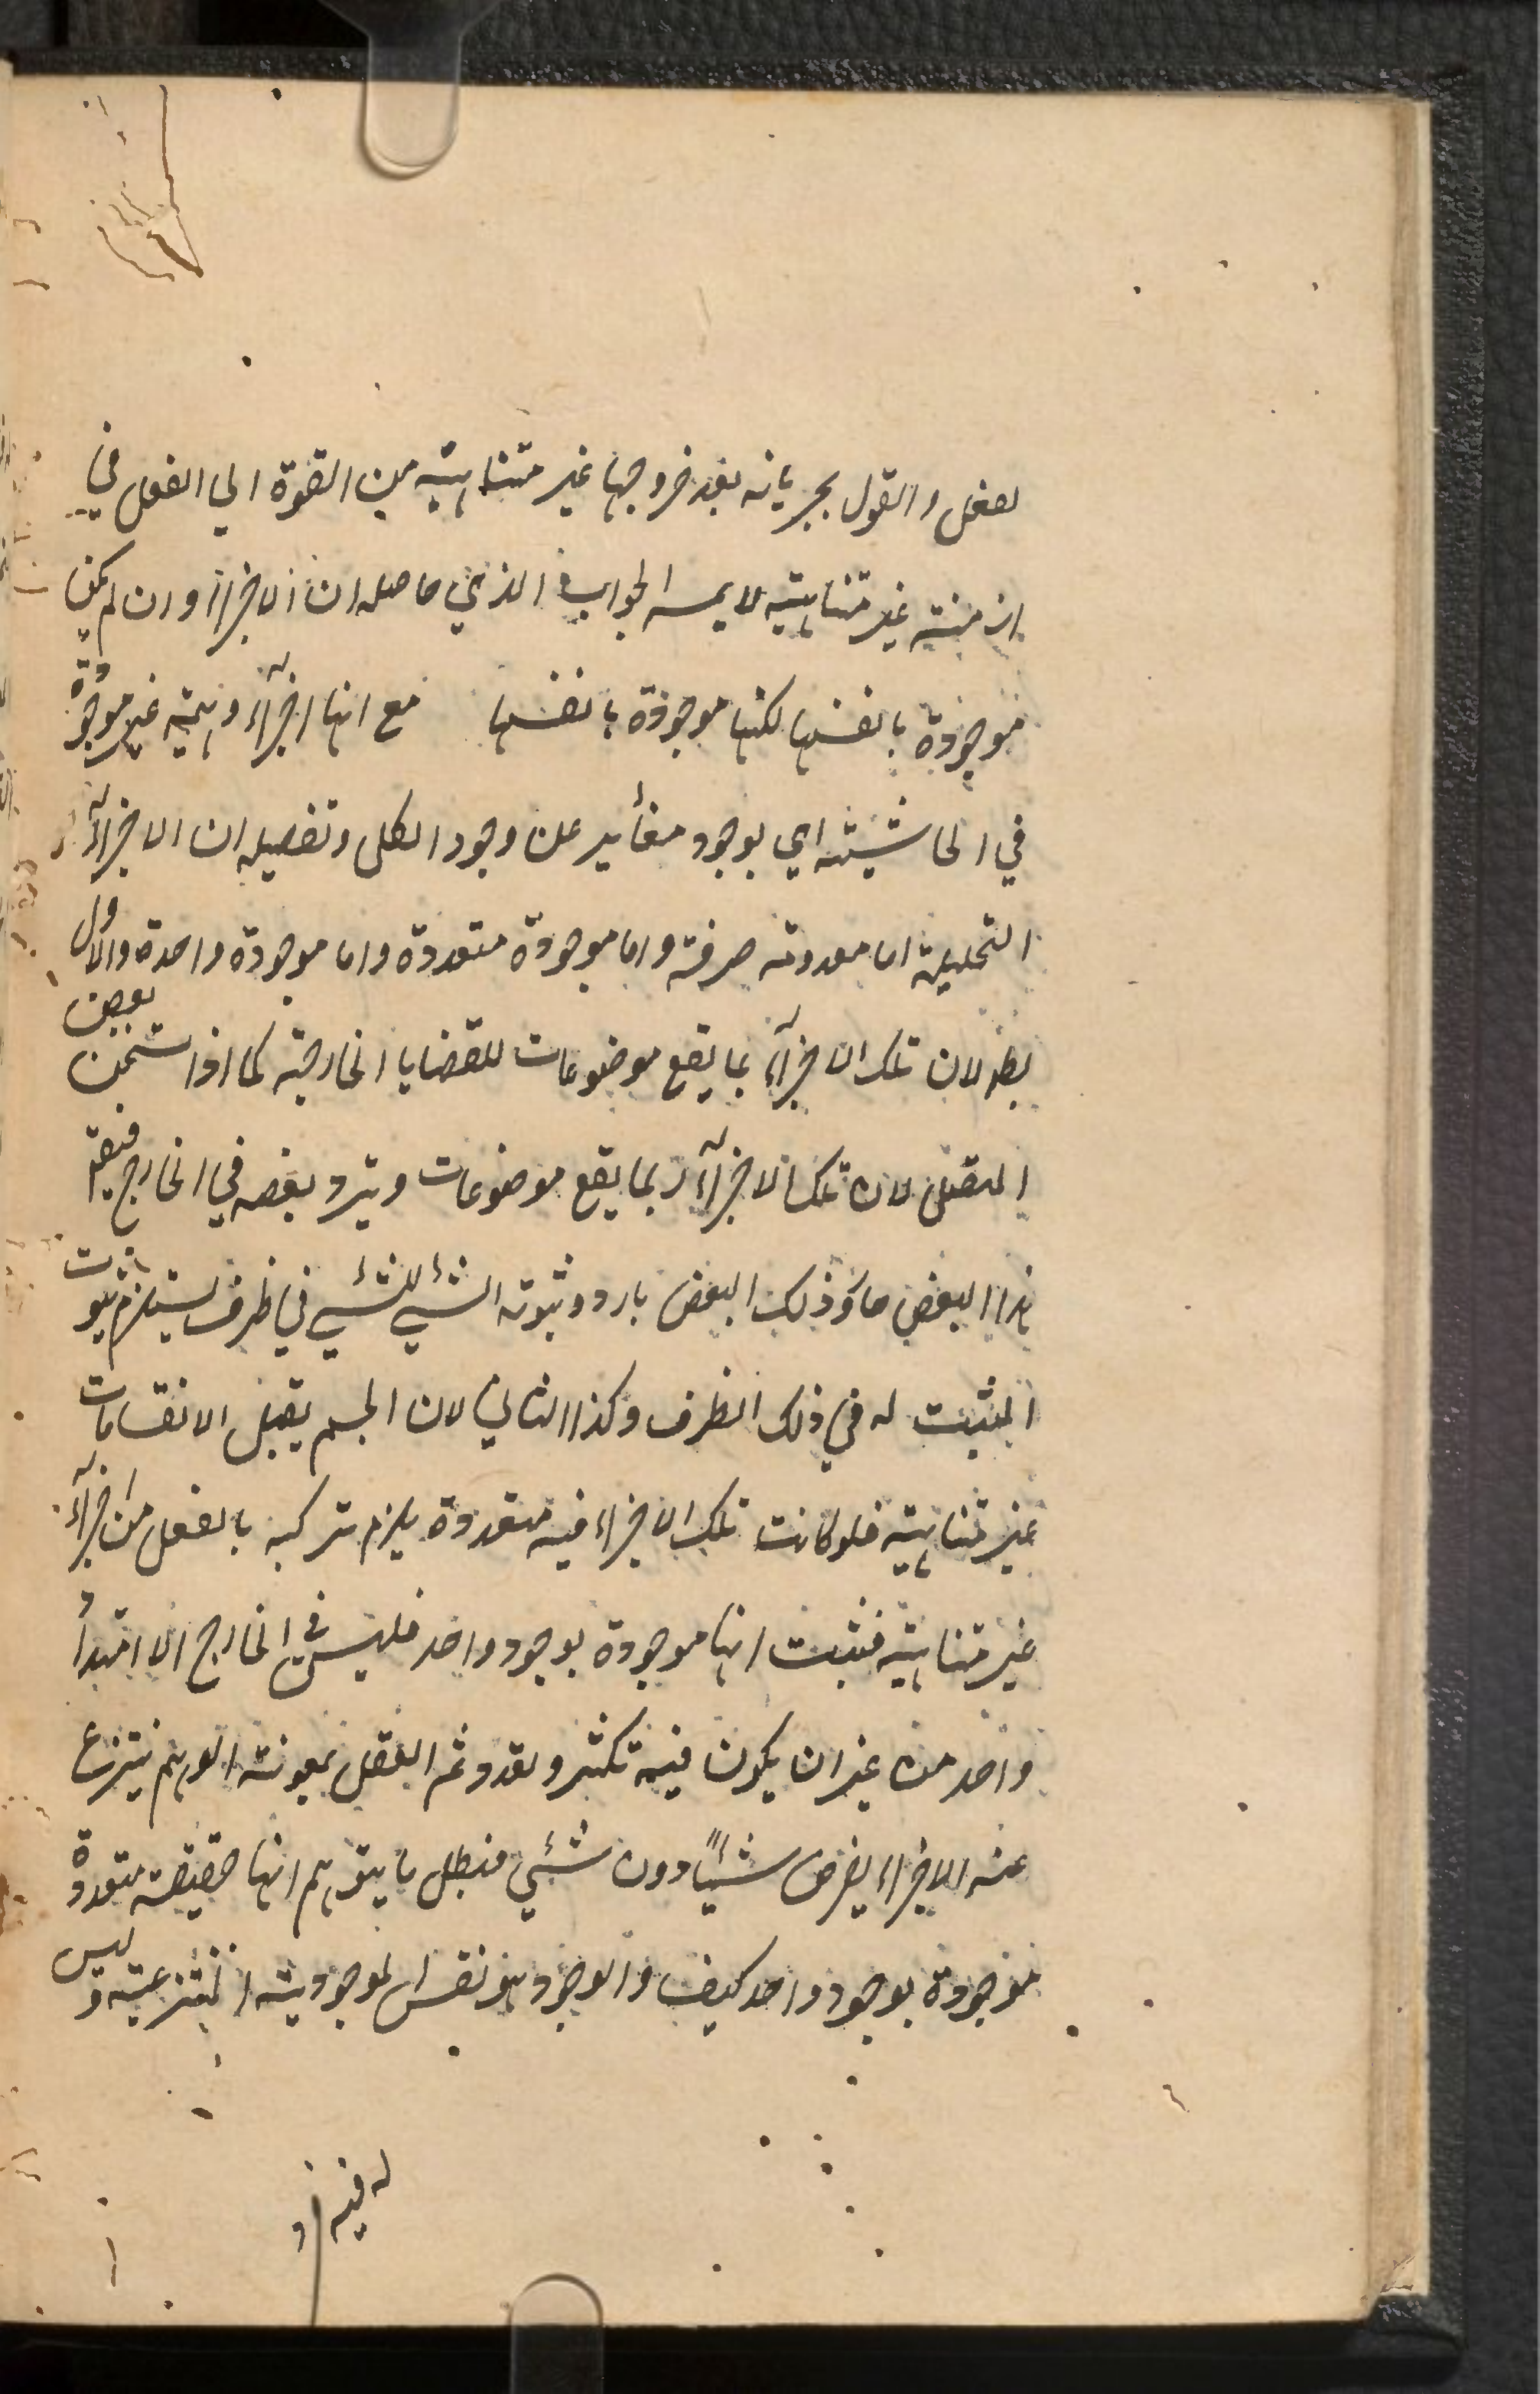 لعفل والقول بجريانه بعد خروجها غير متناهية من القوة الي الفعل في
ازمنة غير متناهية لا يمسه الجواب الذي حاصله ان الاجزاء وان لم يكن
موجودة بانفسها لكنها موجودة بانفسها مع انها اجزاء وهمية غير موجودة
في الحاشية اي بوجود مغاير عن وجود الكل وتفصيله ان الاجزاء
التحليلية اما معدومة صرفة واما موجودة متعددة واما موجودة واحدة والاول
بط لان تلك الاجزاء بما يقع موضوعات للقضايا الخارجية كما اذا سخن بعض
المتصل لان تلك الاجزاء ربما يقع موضوعات ويبرد بعضه في الخارج فيقم
هذا البعض حار وذلك البعض بارد وثبوته الشئ للشئ في ظرف يستلزم ثبوت
المثبت له في ذلك الظرف وكذا الثاني لان الجسم يقبل الانقسامات
غير متناهية فلو كانت تلك الاجزاء فيه متعددة يلزم تركبه بالفعل من اجزاء
غير متناهية فثبت انها موجودة بوجود واحد فليس في الخارج الا امتداد
واحد من غير ان يكون فيه تكثر وتعدد ثم العقل بمعونة الوهم ينتزع
عنه الاجزاء يفرض شيئاً دون شئي فبطل ما يتوهم انها حقيقة متعددة
موجودة بوجود واحد كيف والوجود هو نفس الموجودية المنتزعية وليس
له فيه